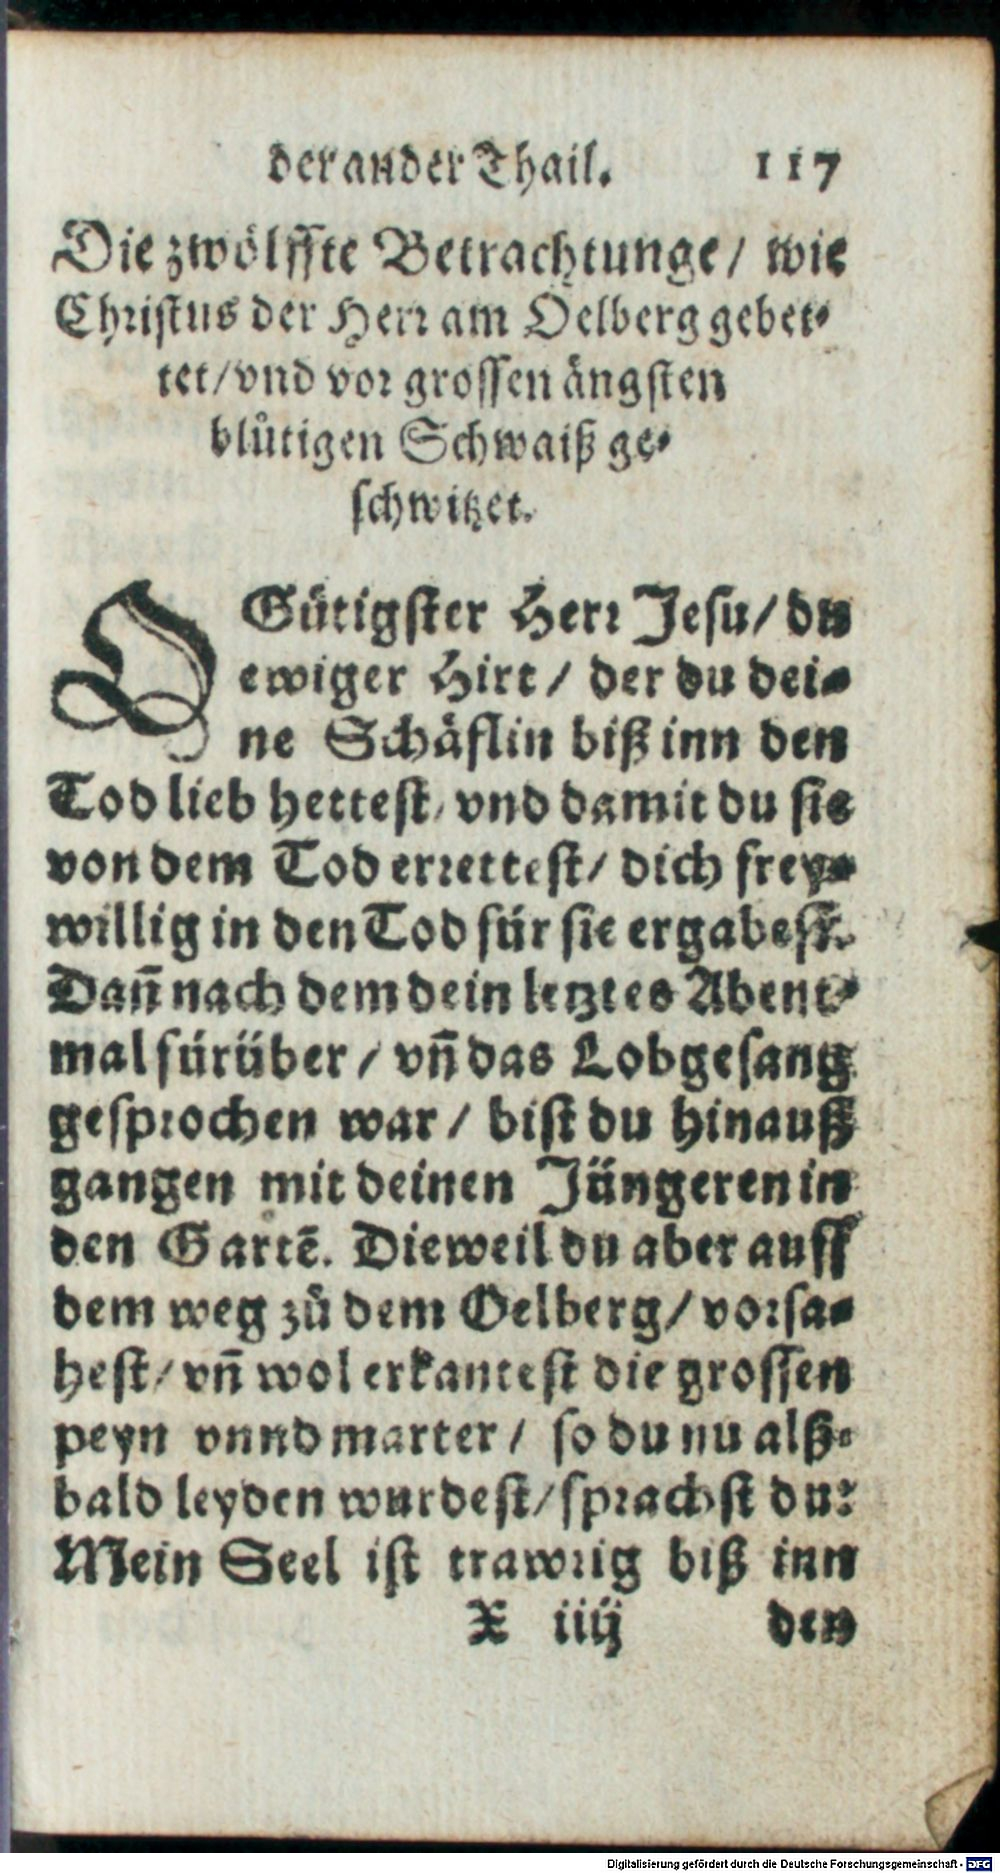 der ander Thail. 117
Die zwölffte Betrachtunge/ wie
Christus der Herr am Oelberg gebet-
tet/ vnd vor grossen ängsten
blůtigen Schwaiß ge-
schwitzet.
O Gütigster Herr Jesu/ du
ewiger Hirt/ der du dei-
ne Schäflin biß inn den
Tod lieb hettest, vnd damit du sie
von dem Tod errettest/ dich frey-
willig in den Tod für sie ergabest.
Dañ nach dem dein letztes Abent-
mal fürüber/ vñ das Lobgesang
gesprochen war/ bist du hinauß
gangen mit deinen Jüngeren in
den Gartē. Dieweil du aber auff
dem weg zů dem Oelberg/ vorsa-
hest/ vñ wol erkantest die grossen
peyn vnnd marter/ so du nu alß-
bald leyden wurdest/ sprachst du:
Mein Seel ist trawrig biß inn
X iiij den
Digitalisierung gefördert durch die Deutsche Forschungsgemeinschaft - DFG